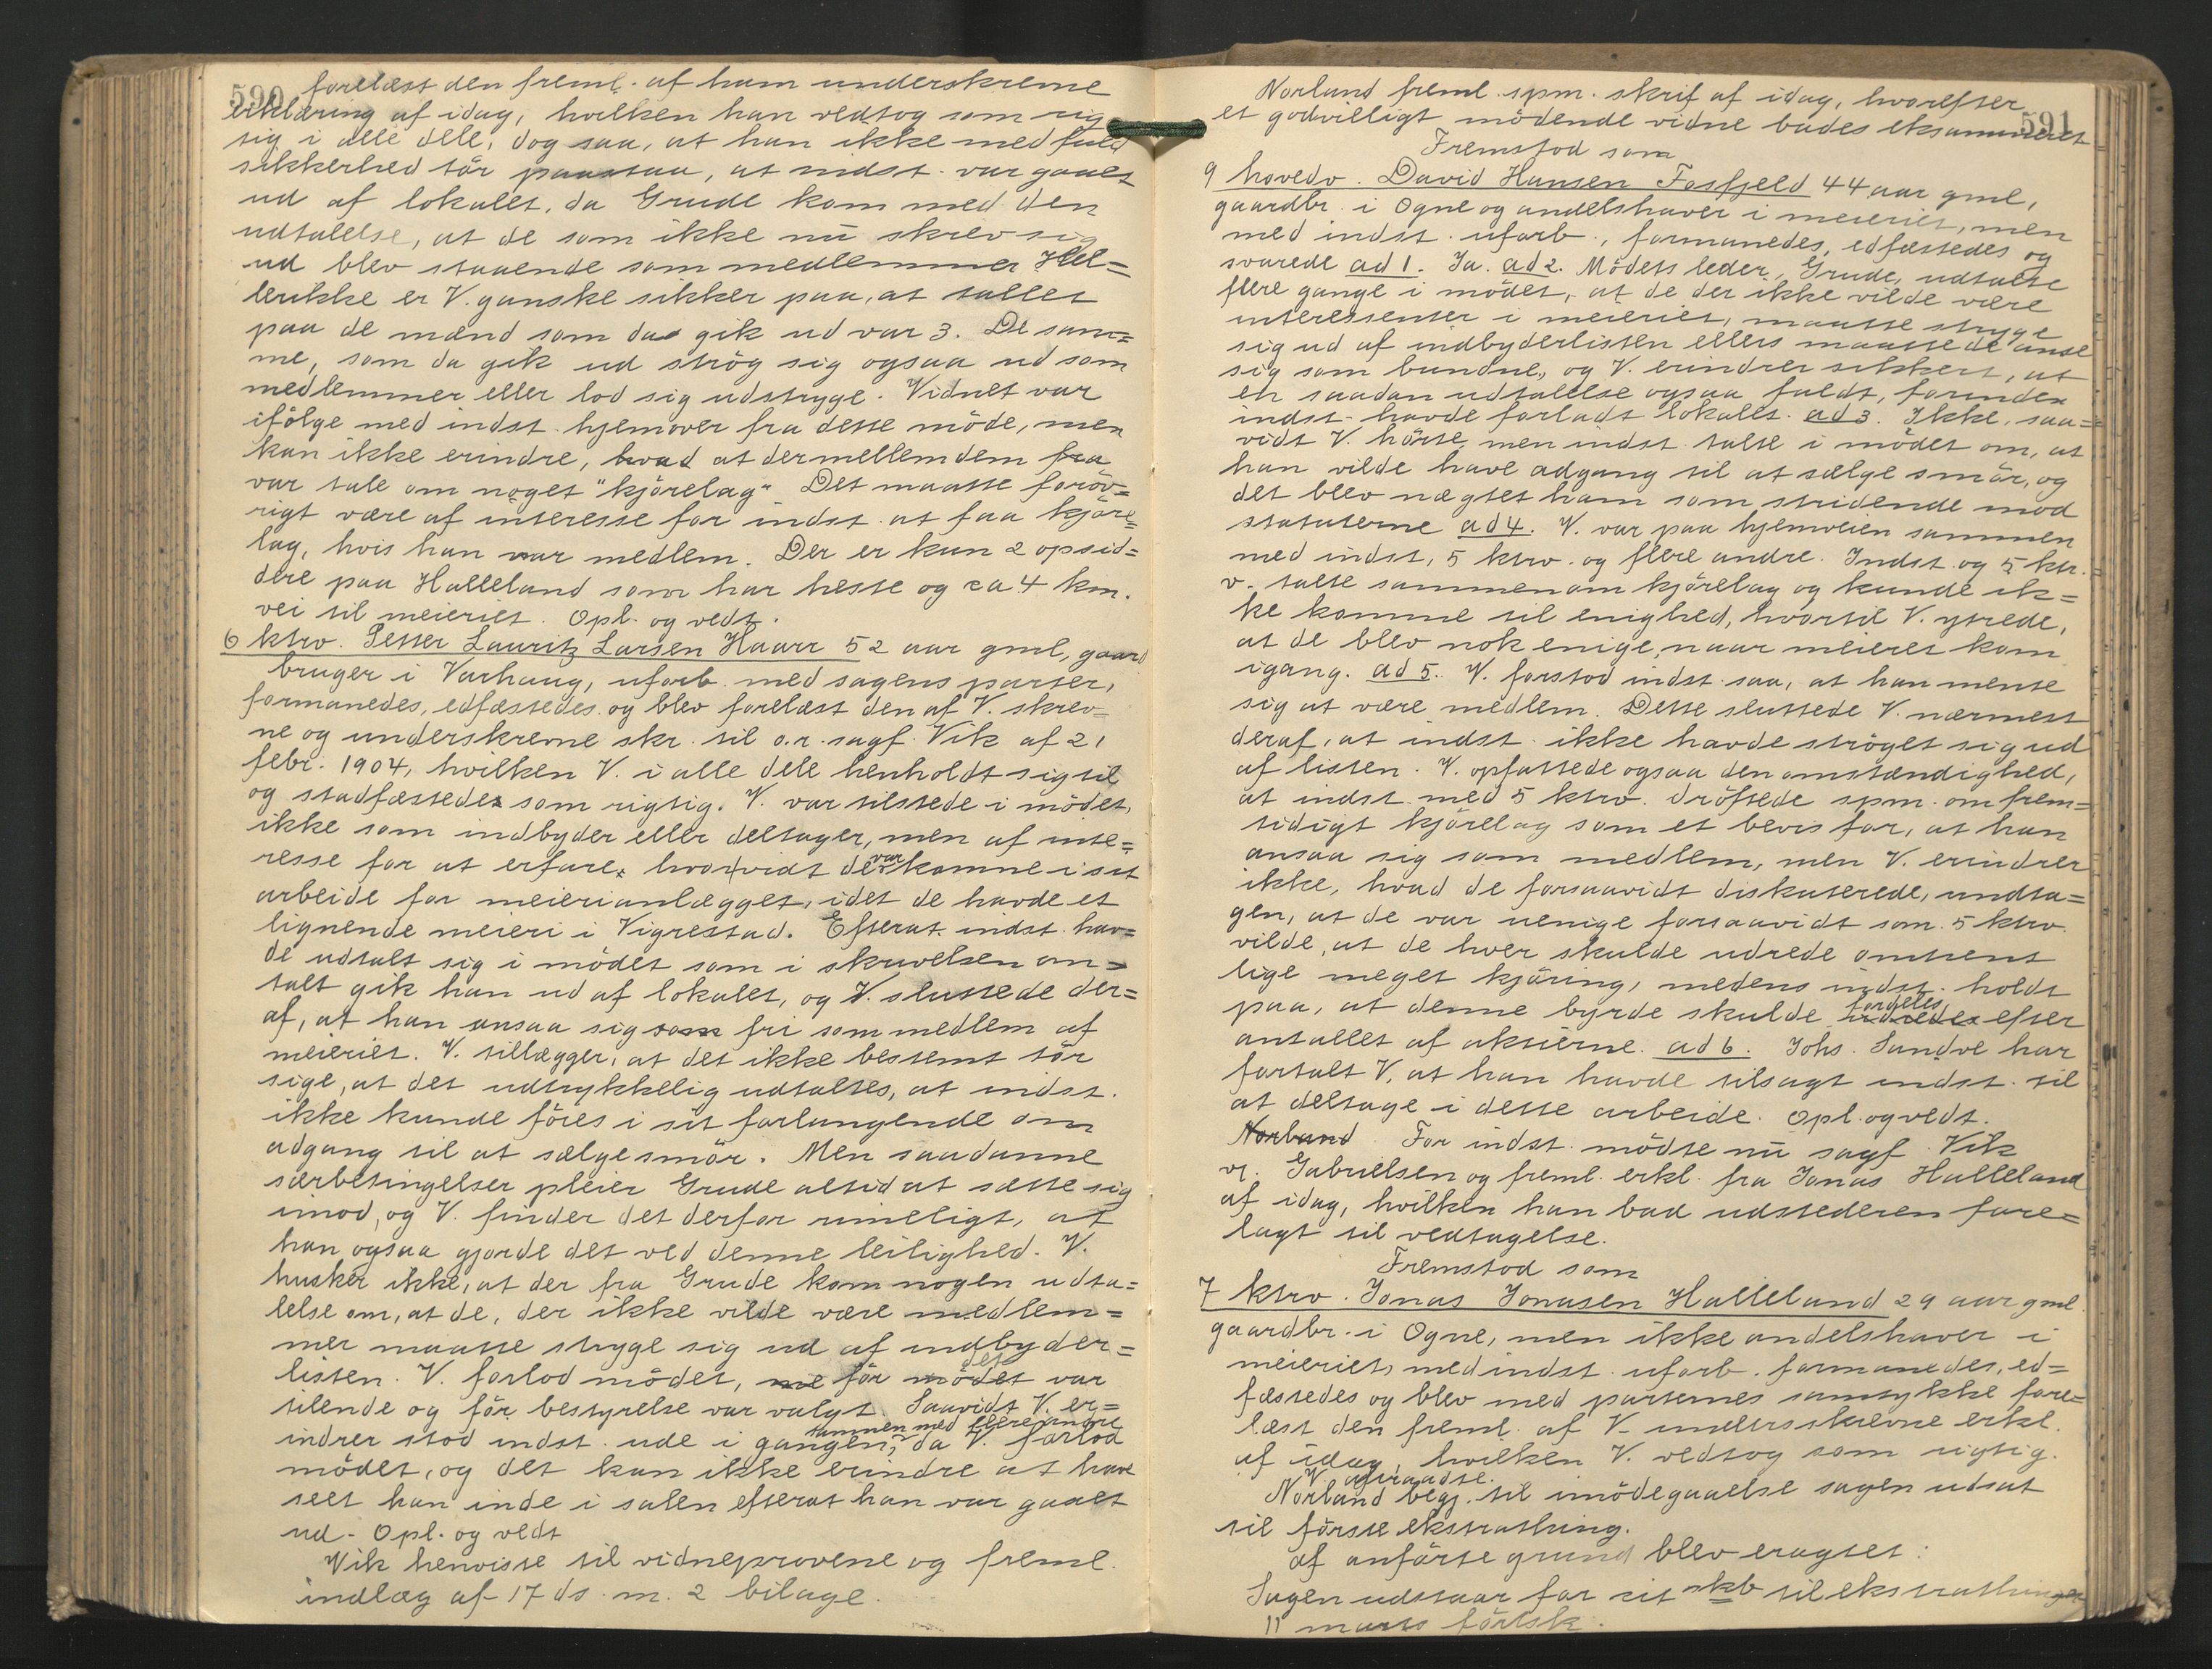 590
forelæst den freml. af ham underskrevne
erklæring af idag, hvilken han vedtog som rig
tig i alle dele, dog saa, at han ikke med fuld
sikkerhed tör paastaa, at indst. var gaaet
ud af lokalet, da Grude kom med den
udtalelse, at de som ikke nu skrev sig
ud blev staaende som medlemmer Hel=
lerikke er V. ganske sikker paa, at tallet
paa de mænd som da gik ud var 3. De sam=
me, som da gik ud strög sig ogsaa ud som
medlemmer eller lod sig udstryge. Vidnet var
ifölge med indst. hjemover fra dette möde, men
kan ikke erindre, hvad at der mellem dem fra
var tale om noget "kjörelag". Det maatte foröv=
rigt være af interesse for indst. at faa kjöre=
lag, hvis han var medlem. Der er kun 2 opsid=
dere paa Halleland som har heste og ca 4 km.
vei til meieriet. Opl. og vedt.
6 ktrv. Petter Lauritz Larsen Haarr 52 aar gml, gaard
bruger i Varhaug, ubesl. med sagens parter,
formanedes, edfæstedes og blev forelæst den af V. skrev=
ne og underskrevne skr. til o.r. sagf. Vik af 21
febr. 1904, hvilken V. i alle dele henholdt sig til
og stadfæstedes som rigtig. V. var tilstede i mödet,
ikke som indbyder eller deltager, men af inte=
resse for at erfare, hvorvidt de var komne i sit
arbeide for meierianlægget, idet de havde et
lignende meieri i Vigrestad. Efterat indst. hav=
de udtalt sig i mödet som i skrivelsen om=
talt gik han ud af lokalet, og V. sluttede der=
af, at han ansaa sig som fri som medlem af
meieriet. V. tillægger, at det ikke bestemt tör
sige, at det udtrykkelig udtaltes, at indst.
ikke kunde föies i sit forlangende om
adgang til at sælge smör. Men saadanne
særbetingelser pleier Grude altid at sætte sig
imod, og V. finder det derfor rimeligt, at
han ogsaa gjorde det ved denne leilighed. V.
husker ikke, at der fra Grude kom nogen udta=
lelse om, at de, der ikke vilde være medlem=
mer maatte stryge sig ud af indbyder=
listen. V. forlod mödet, me för mödet det var
tilende og för bestyrelse var valgt. Saavidt V. er=
indrer stod indst. ude i gangen, sammen med flere andre da V. forlod
mödet, og det kan ikke erindre at have
seet han inde i salen efterat han var gaaet
ud. Opl. og vedt
Vik henviste til vidneprovene og freml.
indlæg af 17 ds. m. 2 bilage.
591
Norland freml. spm. skrif af idag, hvorefter
et godvilligt mödende vidne bades eksamineret
Fremstod som
9 hovedv. David Hansen Fosfjeld 44 aar gml,
gaardbr. i Ogne og andelshaver i meieriet, men
med indst. ubesl., formanedes, edfæstedes og
svarede ad 1. Ja. ad 2. Mödets leder, Grude, udtalte
flere gange i mödet, at de der ikke vilde være
interessenter i meieriet, maatte stryge
sig ud af indbyderlisten ellers maatte de anse
sig som bundne, og V. erindrer sikkert, at
en saadan udtalelse ogsaa faldt, forinden
indst. havde forladt lokalet. ad 3. Ikke, saa=
vidt V. hörte, men indst. talte i mödet om, at
han vilde have adgang til at sælge smör, og
det blev nægtet ham som stridende mod
statuterne ad 4. V. var paa hjemveien sammen
med indst, 5 ktrv. og flere andre. Indst. og 5 ktr.=
v. talte sammen om kjörelag og kunde ik=
ke komme til enighed, hvortil V. ytrede,
at de blev nok enige, naar meieriet kom
igang. ad 5. V. forstod indst saa, at han mente
sig at være medlem. Dette sluttede V. nærmest
deraf, at indst. ikke havde ströget sig ud
af listen. V. opfattede ogsaa den omstændighed,
at indst. med 5 ktrv. dröftede spm. om frem=
tidigt kjörelag som et bevis for, at han
ansaa sig som medlem, men V. erindrer
ikke, hvad de forsaavidt diskuterede, undta=
gen, at de var uenige forsaavidt som 5 ktrv.
vilde, at de hver skulde udrede omtrent
lige meget kjöring, medens indst. holdt
paa, at denne byrde skulde udredes fordeles efter
antallet af aktierne. ad 6. Johs. Sandve har
fortalt V. at han havde tilsagt indst. til
at deltage i dette arbeide. Opl. og vedt.
Norland For indst. mödte nu sagf. Vik
v. Gabrielsen og freml. erkl. fra Jonas Halleland
af idag, hvilken han bad udstederen fore=
lagt til vedtagelse.
Fremstod som
7 ktrv. Jonas Jonasen Halleland 29 aar gml.
gaardbr. i Ogne, men ikke andelshaver i
meieriet, med indst. ubesl. formanedes, ed=
fæstedes og blev med parternes samtykke fore=
læst den freml. af V. underskrevne erkl.
af idag, hvilken V. vedtog som rigtig.
V. afstraadte.
Norland begj. til imödegaaelse sagen udsat
til förste ekstrathing.
Af anförte grund blev eragtet:
Sagen udstaar for sit skb til ekstrathinget
11 marts förstk.